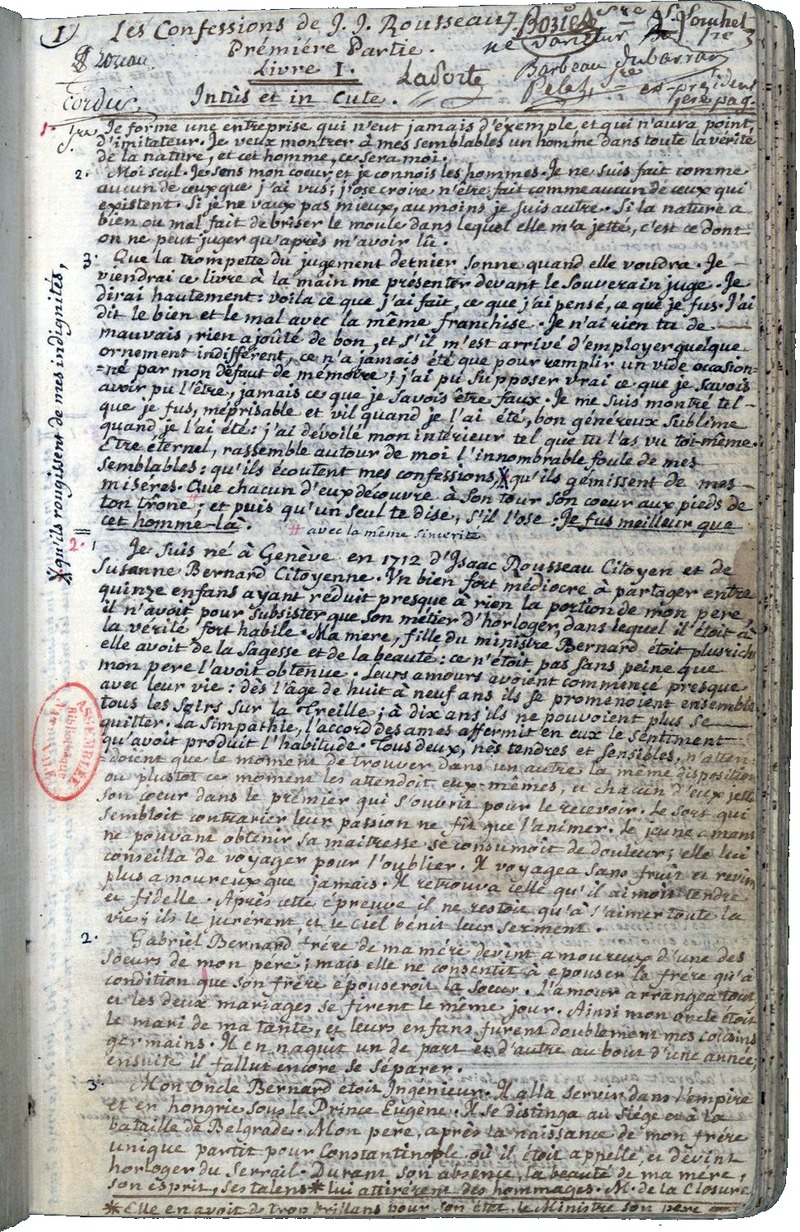 1
Les Confessions de J. J. Rousseau
Première Partie.
Livre I.
LaPorte
Intùs et in Cute.
1. Je forme une entreprise qui n'eut jamais d'éxemple, et qui n'aura point
d'imitateur. Je veux montrer à mes semblables un homme dans toute la vérité
de la nature, et cet homme, ce sera moi.
2. Moi seul. Je sens mon cœur, et je connois les hommes. Je ne suis fait comme
aucun de ceux que j'ai vus; j'ose croire n'être fait comme aucun de ceux qui
existent. Si je ne vaux pas mieux, au moins je suis autre. Si la nature a
bien ou mal fait de briser le moule dans lequel elle m'a jetté, c'est ce dont
on ne peut juger qu'après m'avoir lû.
3. Que la trompette du jugement dernier sonne quand elle voudra. Je
viendrai ce livre à la main me présenter devant le Souverain juge. Je
dirai hautement: voila ce que j'ai fait, ce que j'ai pensé, ce que je fus. J'ai
dit le bien et le mal avec la même franchise. Je n'ai rien tu de
mauvais, rien ajoûté de bon, et s'il m'est arrivé d'employer quelque
ornement indifférent, ce n'a jamais été que pour remplir un vide ocasion=
=né par mon défaut de mémoire; j'ai pu supposer vrai ce que je savois
avoir pu l'être, jamais ce que je savois être faux. Je me suis montré tel
que je fus, méprisable et vil quand je l'ai été, bon généreux sublime
quand je l'ai été: j'ai dévoilé mon intérieur tel que tu l'as vu toi-même.
Etre éternel, rassemble autour de moi l'innombrable foule de mes
semblables: qu'ils écoutent mes confessions, X qu'ils gémissent de mes
misères. Que chacun d'eux découvre à son tour son cœur aux pieds de
ton trône #; et puis qu'un seul te dise, s'il l'ose: Je fus meilleur que
cet homme-là.
# avec la même sincérité
X qu'ils rougissent de mes indignités,
2. 1 Je suis né à Genève en 1712 d'Isaac Rousseau Citoyen et de
Susanne Bernard Citoyenne. Un bien fort médiocre à partager entre
quinze enfans ayant réduit presque à rien la portion de mon pere,
il n'avoit pour subsister que son métier d'horloger, dans lequel il étoit à
la vérité fort habile. Ma mere, fille du ministre Bernard étoit plus riche
elle avoit de la sagesse et de la beauté: ce n'étoit pas sans peine que
mon pere l'avoit obtenue. Leurs amours avoient commencé presque
avec leur vie: dès l'âge de huit à neuf ans ils se promenoient ensemble
tous les soirs sur la Treille; à dix ans ils ne pouvoient plus se
quitter. La simpathie, l'accord des ames affermit en eux le sentiment
qu'avoit produit l'habitude. Tous deux, nés tendres et sensibles, n'atten=
=doient que le moment de trouver dans un autre la même disposition
ou plustot ce moment les attendoit eux-mêmes, et chacun d'eux jetta
son cœur dans le prémier qui s'ouvrit pour le recevoir. Le sort qui
sembloit contrarier leur passion ne fit que l'animer. Le jeune amant
ne pouvant obtenir sa maitresse se consumoit de douleur; elle lui
conseilla de voyager pour l'oublier. Il voyagea sans fruit et revint
plus amoureux que jamais. Il retrouva celle qu'il aimoit tendre
et fidelle. Après cette épreuve il ne restoit qu'à s'aimer toute la
vie; ils le jurérent, et le Ciel bénit leur serment.
2. Gabriel Bernard, frére de ma mére devint amoureux d'une des
sœurs de mon pére; mais elle ne consentit à épouser le frére qu'à
condition que son frére épouseroit la sœur. L'amour arrangea tout
et les deux mariages se firent le même jour. Ainsi mon oncle étoit
le mari de ma tante, et leurs enfans furent doublement mes cousins
germains. Il en naquit un de part et d'autre au bout d'une année;
ensuite il fallut encore se séparer.
3. Mon Oncle Bernard étoit Ingénieur. Il alla servir dans l'empire
et en hongrie sous le Prince Eugène. Il se distingua au siége et à la
bataille de Belgrade. Mon pere, après la naissance de mon frére
unique partit pour Constantinople où il étoit appellé, et devint
horloger du Serrail. Durant son absence, la beauté de ma mére,
son esprit, ses talens * lui attirérent des hommages. M. de la Closure
* Elle en avoit de trop brillans pour son état, le Ministre son pere
ASSEMBLÉE
NATIONALE
Bibliothèque